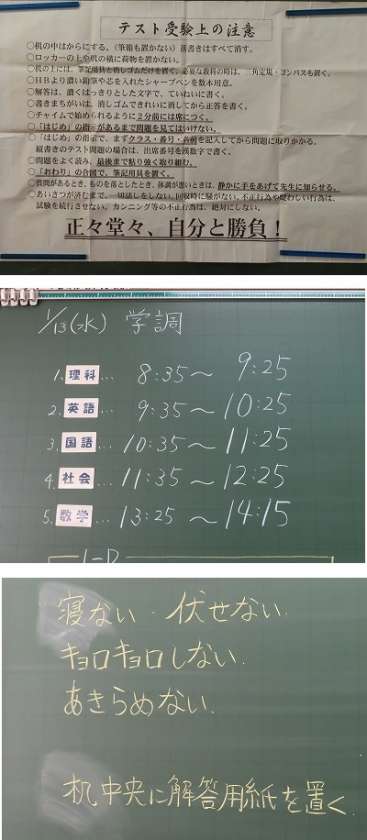 テスト受験上の注意
○机の中はからにする。（筆箱も置かない）落書きはすべて消す。
○ロッカーの上や机の横に荷物を置かない。
○机の上には、筆記用具と消しゴムだけを置く。必要な教科の時は、三角定規・コンパスも置く。
○ＨＢより濃い鉛筆や芯を入れたシャープペンを数本用意。
○解答は、濃くはっきりとした文字で、ていねいに書く。
○書きまちがいは、消しゴムできれいに消してから正答を書く。
○チャイムで始められるように２分前には席につく。
○「はじめ」の指示があるまで問題を見てはいけない。
○「はじめ」の指示で、まずクラス・番号・名前を記入してから問題に取りかかる。
縦書きのテスト問題の場合は、出席番号を漢数字で書く。
○問題をよく読み、最後まで粘り強く取り組む。
○「おわり」の合図で、筆記用具を置く。
○質問があるとき、ものを落としたとき、体調が悪いときは、静かに手をあげて先生に知らせる。
○あいさつが済むまで、一切話しをしない。回収時に騒がない。不正行為や疑わしい行為は、
試験を続行させない。カンニング等の不正行為は、絶対にしない。
正々堂々、自分と勝負！
1/13(水) 学調
1. 理科 … 8:35〜 9:25
2. 英語 … 9:35〜10:25
3. 国語 … 10:35〜11:25
4. 社会 … 11:35〜12:25
5. 数学 … 13:25〜14:15
寝ない・伏せない.
キョロキョロしない.
あきらめない.
机中央に解答用紙を置く.